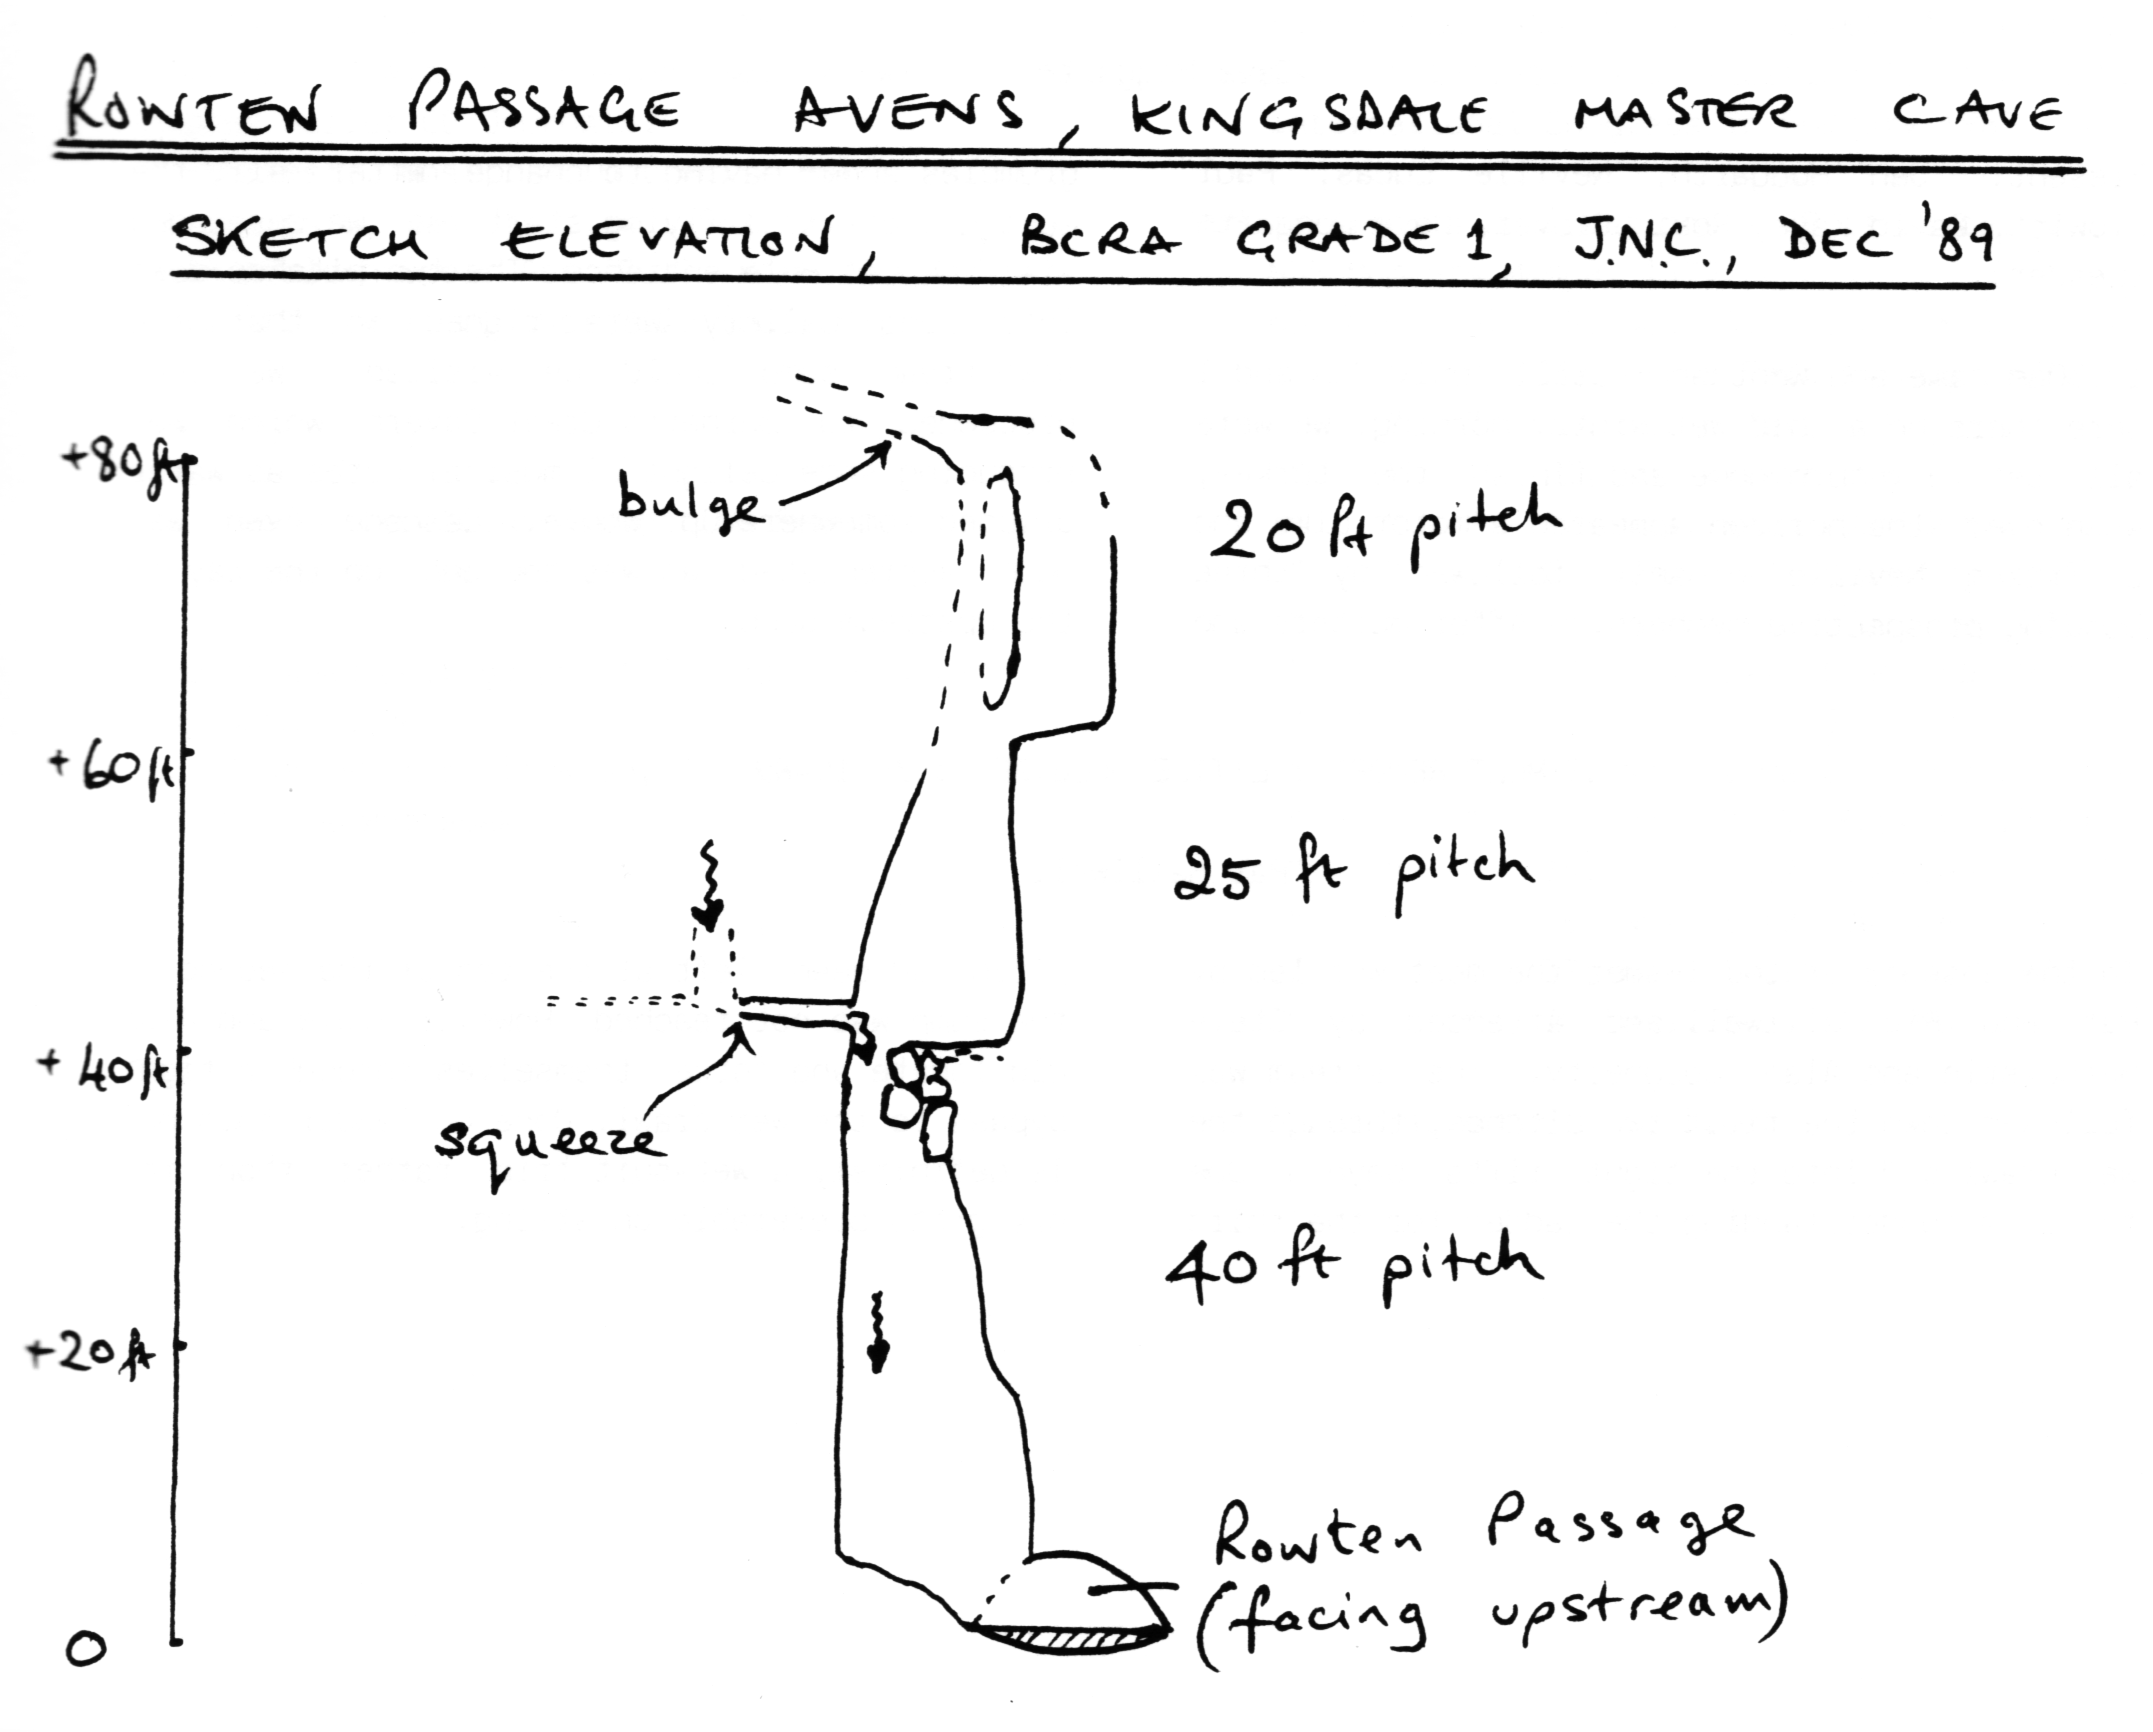 ROWTEN PASSAGE AVENS, KINGSDALE MASTER CAVE
SKETCH ELEVATION, BCRA GRADE 1, J.N.C., DEC '89
+80ft
bulge
20 ft pitch
+60ft
25 ft pitch
+40ft
squeeze
40 ft pitch
+20ft
Rowten Passage
(facing upstream)
0